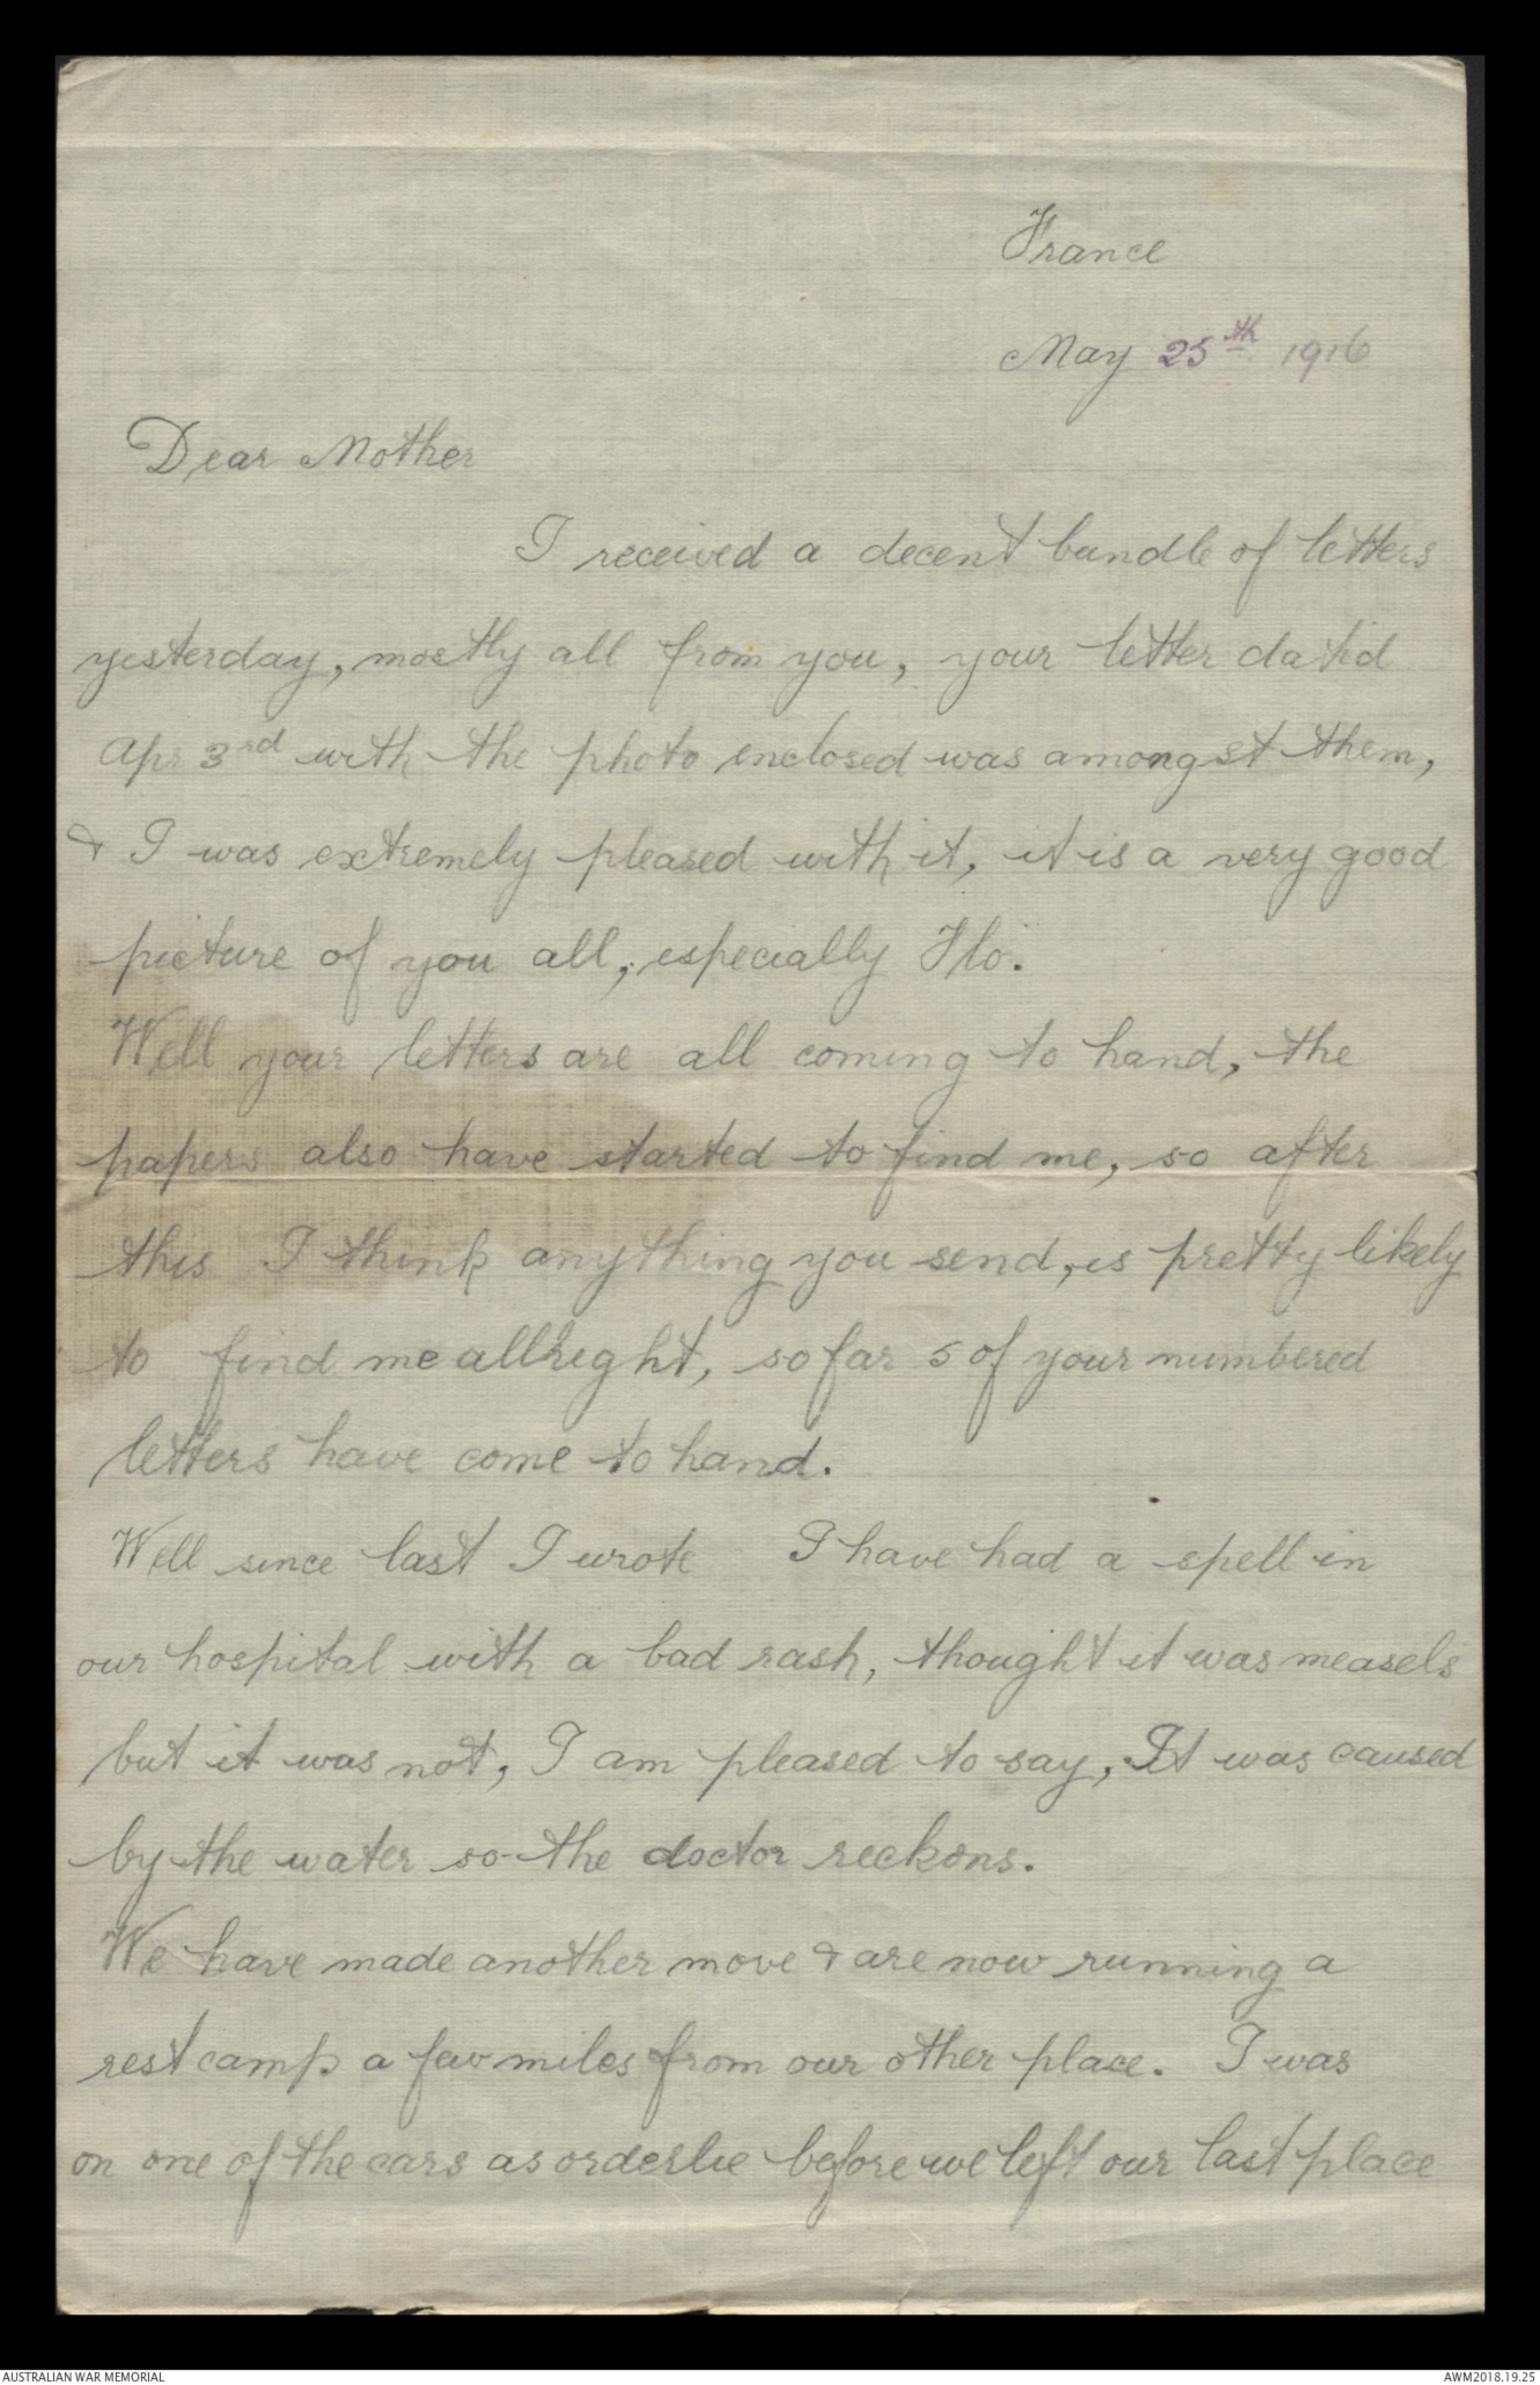 France
May 25th 1916
Dear Mother
I received a decent bundle of letters
yesterday, mostly all from you, your letter dated
Apr 3rd with the photo enclosed was amongst them,
& I was extremely pleased with it, it is a very good
picture of you all, especially Flo.
Well your letters are all coming to hand, the
papers also have started to find me, so after
this I think anything you send, is pretty likely
to find me allright, so far 5 of your numbered
letters have come to hand.
Well since last I wrote I have had a spell in
our hospital with a bad rash, thought it was measels
but it was not, I am pleased to say, It was caused
by the water so the doctor reckons.
We have made another move & are now running a
rest camp a few miles from our other place. I was
on one of the cars as orderlie before we left our last place
AUSTRALIAN WAR MEMORIAL
AWM2018.19.25